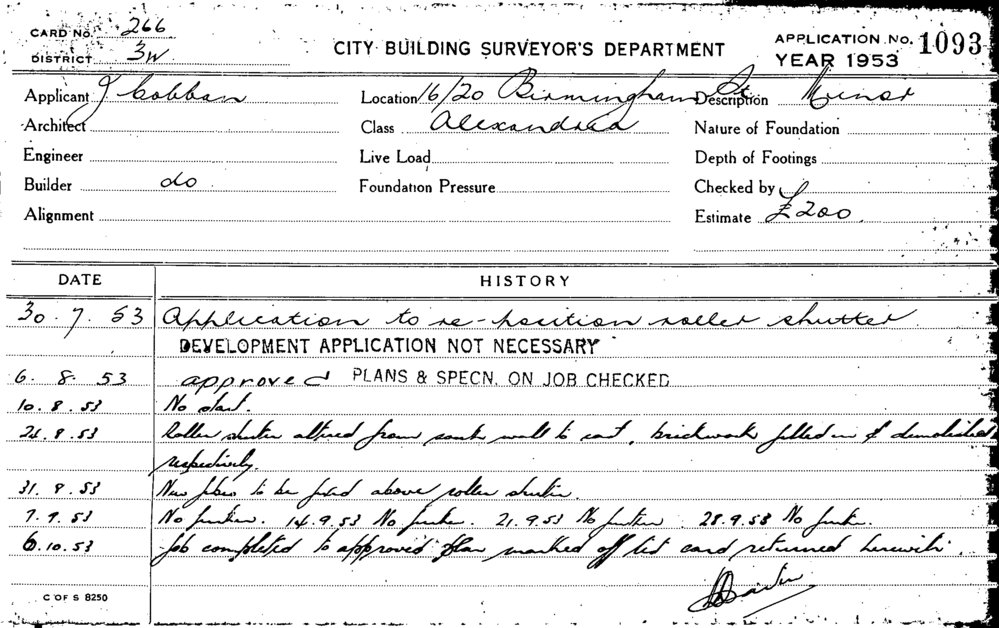 CARD No. 266
DISTRICT 3W
CITY BUILDING SURVEYOR'S DEPARTMENT
APPLICATION No. 1093
YEAR 1953
Applicant J Cobban Location 16/20 Birmingham St Description Minor
Architect Class Alexandria Nature of Foundation
Engineer Live Load Depth of Footings
Builder do Foundation Pressure Checked by
Alignment Estimate £200
DATE HISTORY
30.7.53 Application to re-position roller shutter
DEVELOPMENT APPLICATION NOT NECESSARY
6.8.53 approved PLANS & SPECN. ON JOB CHECKED
10.8.53 No start.
24.8.53 Roller shutter altered from south wall to east, brickwork filled in & demolished
respectively.
31.8.53 New to be fixed above roller shutter.
7.9.53 No further. 14.9.53 No further. 21.9.53 No further. 28.9.53 No further.
6.10.53 Job completed to approved plan marked off list card returned herewith.
C OF S 8250